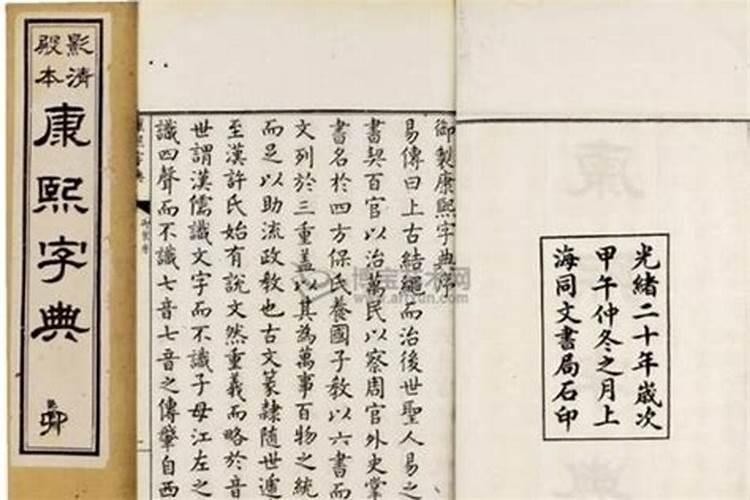 影清
殿本
康熙字典
卯
光緒二十年歲次
甲午仲冬之月上
海同文書局石印
御製康熙字典序
易傳曰上古結繩而治後世聖人易之
書契百官以治萬民以察周官外史掌
書名於四方保氏養國子教以六書而
文列於三重蓋以其為萬事百物之統
而足以助流政教也古文篆隸隨世遞
至漢許氏始有說文然重義而略於音
世謂漢儒識文字而不識子母江左之
識四聲而不識七音七音之傳肇自西
博宝艺术网
www.artxun.com